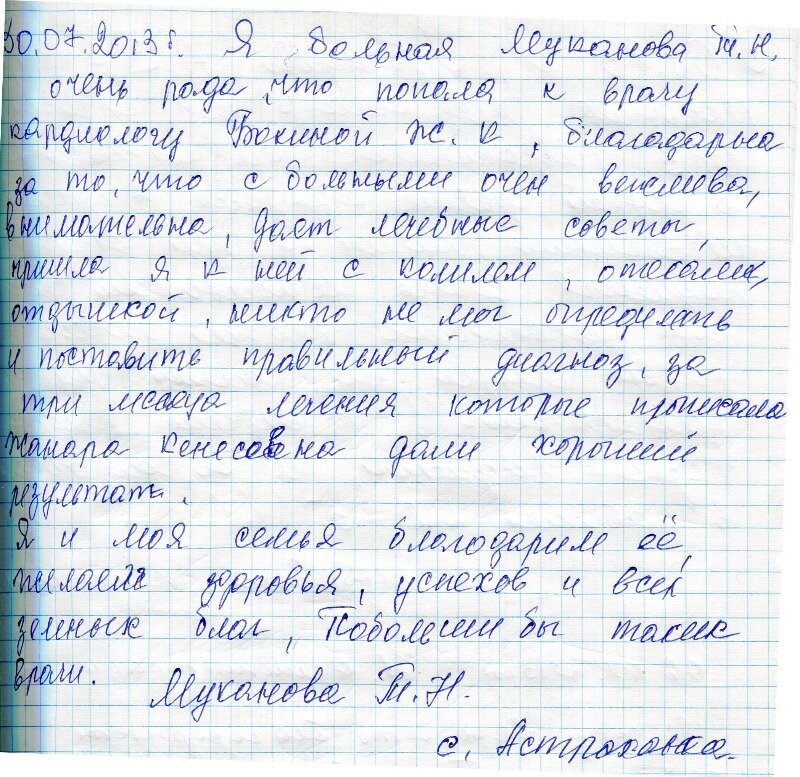 30.07.2013г. Я больная Муканова Т.Н.
очень рада, что попала к врачу
кардиологу Бокиной Ж.К, благодарна
за то, что с больными очен вежлева,
внимательна, дает лечебные советы,
пришла я к ней с кашлем, отеками,
отдышкой, никто не мог определить
и поставить правильный диагноз, за
три месяца лечения которые прописала
Жанара Кенесовна дали хороший
результат.
Я и моя семья благодарим её,
желаем здоровья, успехов и всех
земных благ, Побольше бы таких
врачи.
Муканова Т.Н.
с. Астраханка.